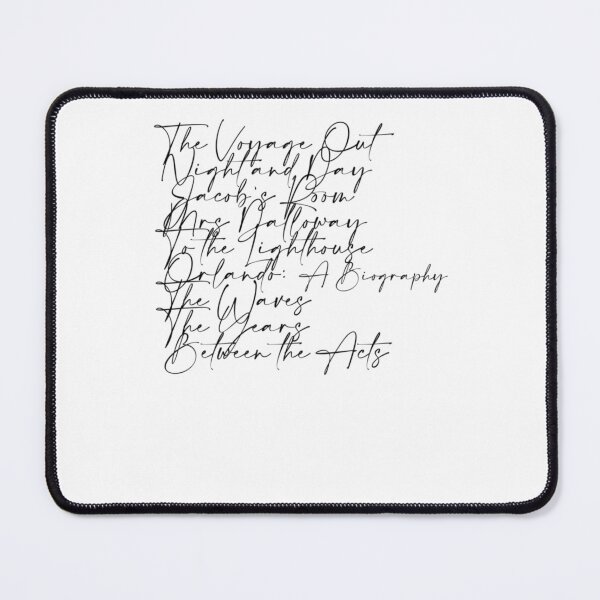 The Voyage Out
Night and Day
Jacob's Room
Mrs Dalloway
To the Lighthouse
Orlando: A Biography
The Waves
The Years
Between the Acts